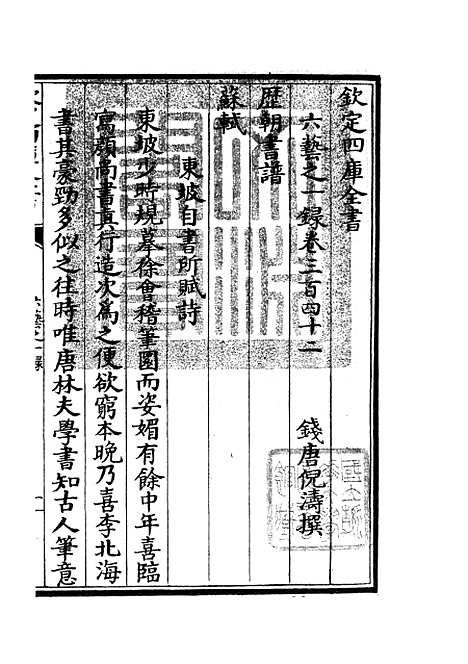 欽定四庫全書
六藝之一錄卷三百四十二
錢唐倪濤撰
歷朝書譜
蘇軾
東坡自書所賦詩
東坡少時規摹徐會稽筆圓而姿媚有餘中年喜臨
寫顔尚書真行造次為之便欲窮本晚乃喜李北海
書其豪勁多似之往時唯唐林夫學書知古人筆意